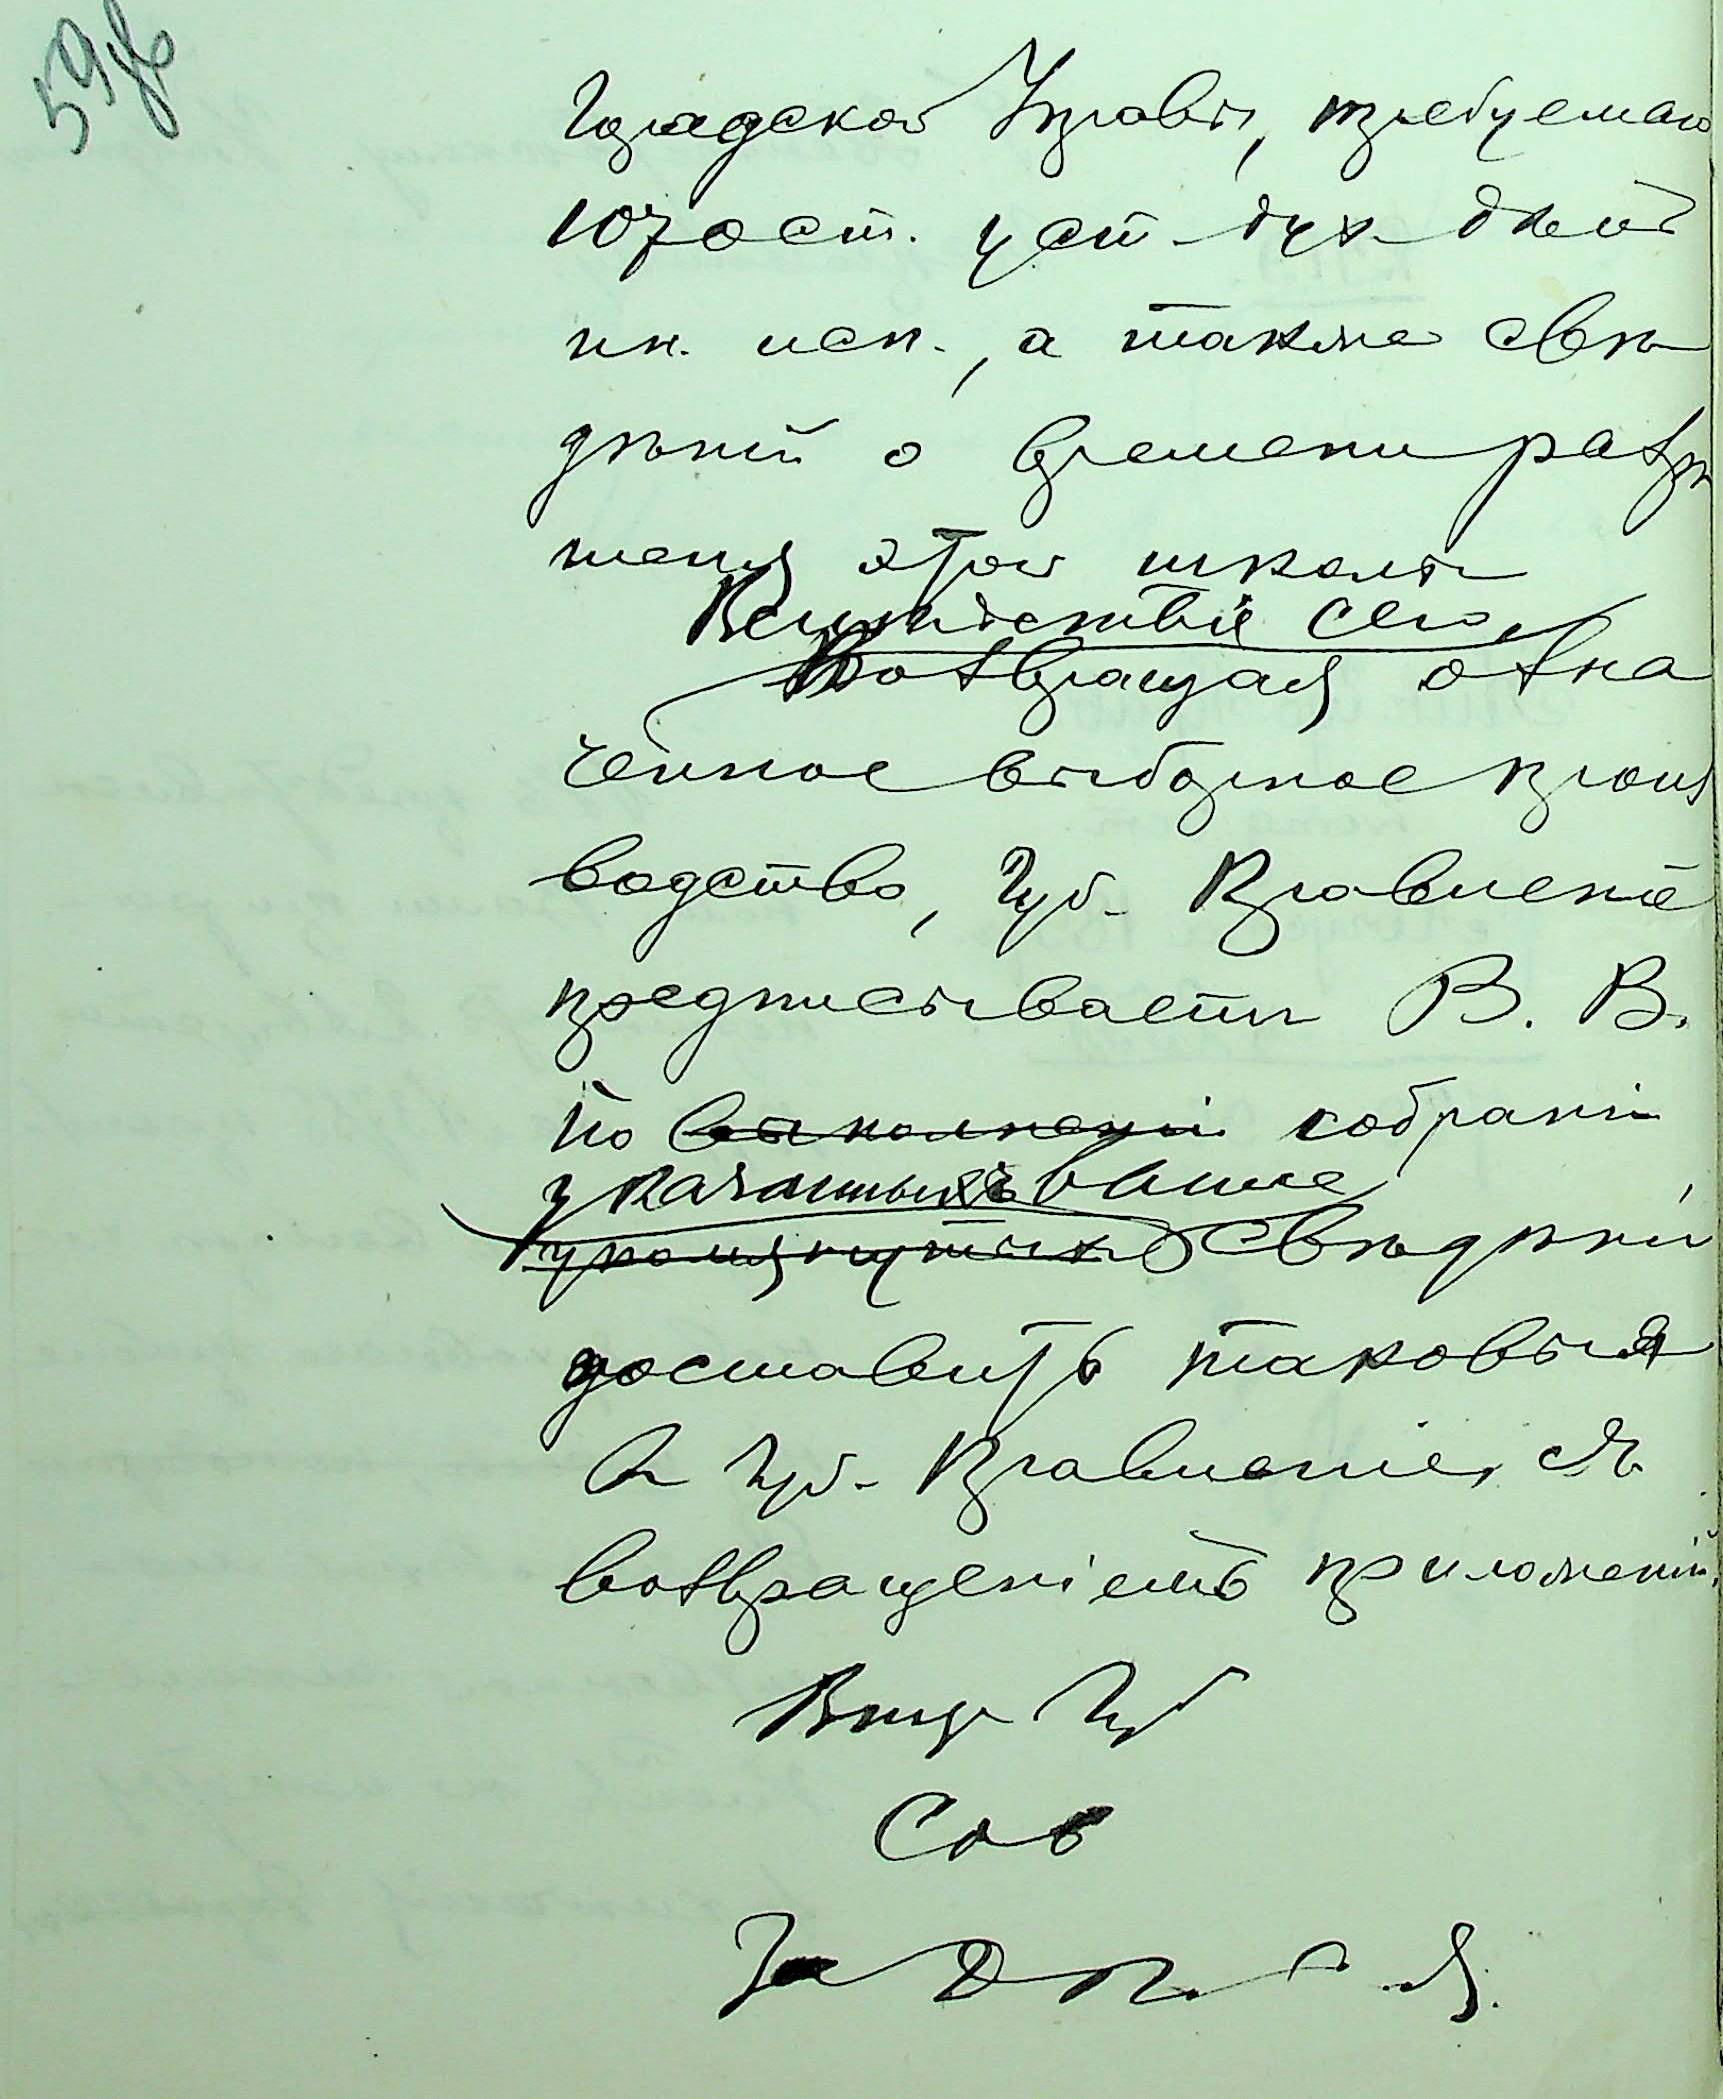 59 об
Градской Управы, требуемаго
107 ост. уст дух дѣлъ
ин. исп., а также свѣ
дѣній о времени разрѣ
шенія этой школы
Вслѣдствіе сего,
Возвращая озна
ченное выборное произ
водство, Губ. Правленіе
предписываетъ В. В.
по выполненіи собраніи
указанныхъ выше
упомянутыхъ свѣдѣній
доставить таковыя
въ Губ. Правленіе, съ
возвращеніемъ приложеній.
Виц Губ
Сов
За